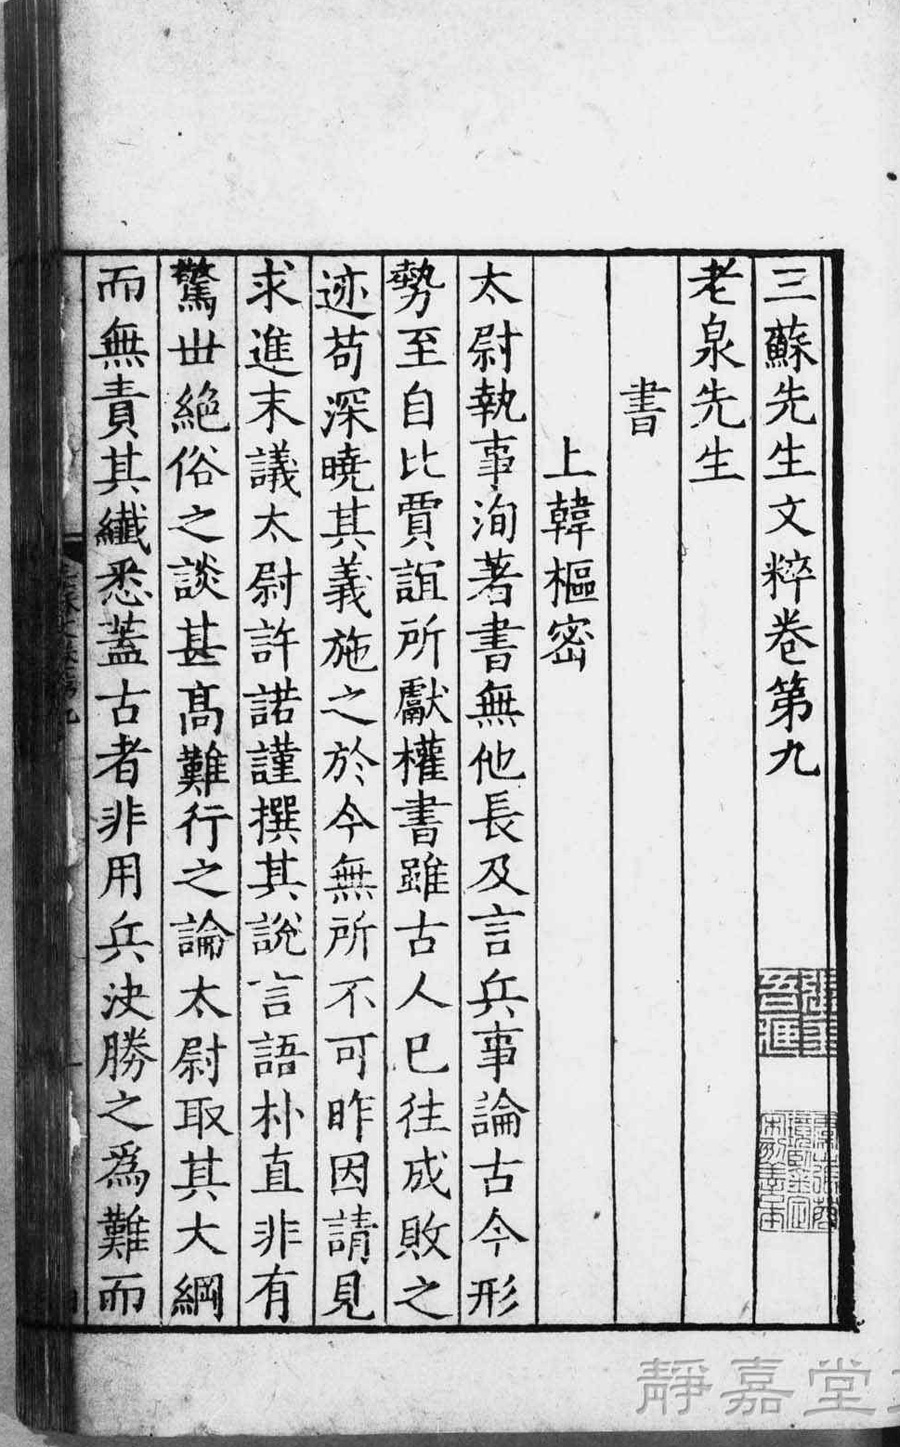 三蘇先生文粹卷第九
老泉先生
書
上韓樞密
太尉執事洵著書無他長及言兵事論古今形
勢至自比賈誼所獻權書雖古人已往成敗之
迹苟深曉其義施之於今無所不可昨因請見
求進末議太尉許諾謹撰其說言語朴直非有
驚世絕俗之談甚髙難行之論太尉取其大綱
而無責其纖悉蓋古者非用兵決勝之爲難而
靜嘉堂